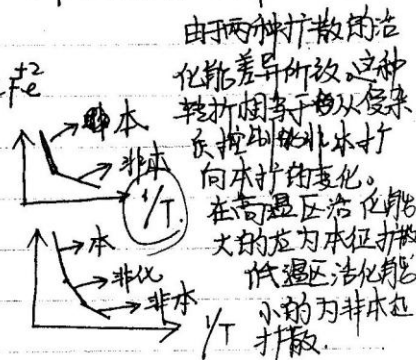 由于两种扩散的活
化能差异所致。这种
转折相当于从受杂
质控制的非本扩
向本扩的变化。
在高温区活化能
大的应为本征扩散
低温区活化能
小的为非本征
扩散.
Fe+2
本
非本
1/T.
本
非化
非本
1/T